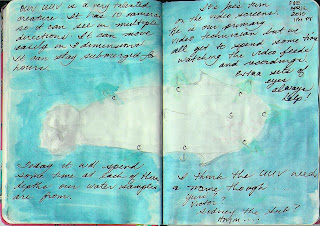 Our AUV is a very talented
creature. It has 10 cameras
so it can see in multiple
directions. It can move
easily in 3 dimensions.
It can stay submerged for
hours.
Today it will spend
some time at each of the
depths our water samples
are from.
It's fun
the video screens.
is our primary
video technician but we
all get to spend some time
watching the video feeds
and recordings.
Extra sets of
eyes
always
help!
I think the AUV needs
a name, though.
Sidney the Sub?
Hmm...
C
C
C
C
C